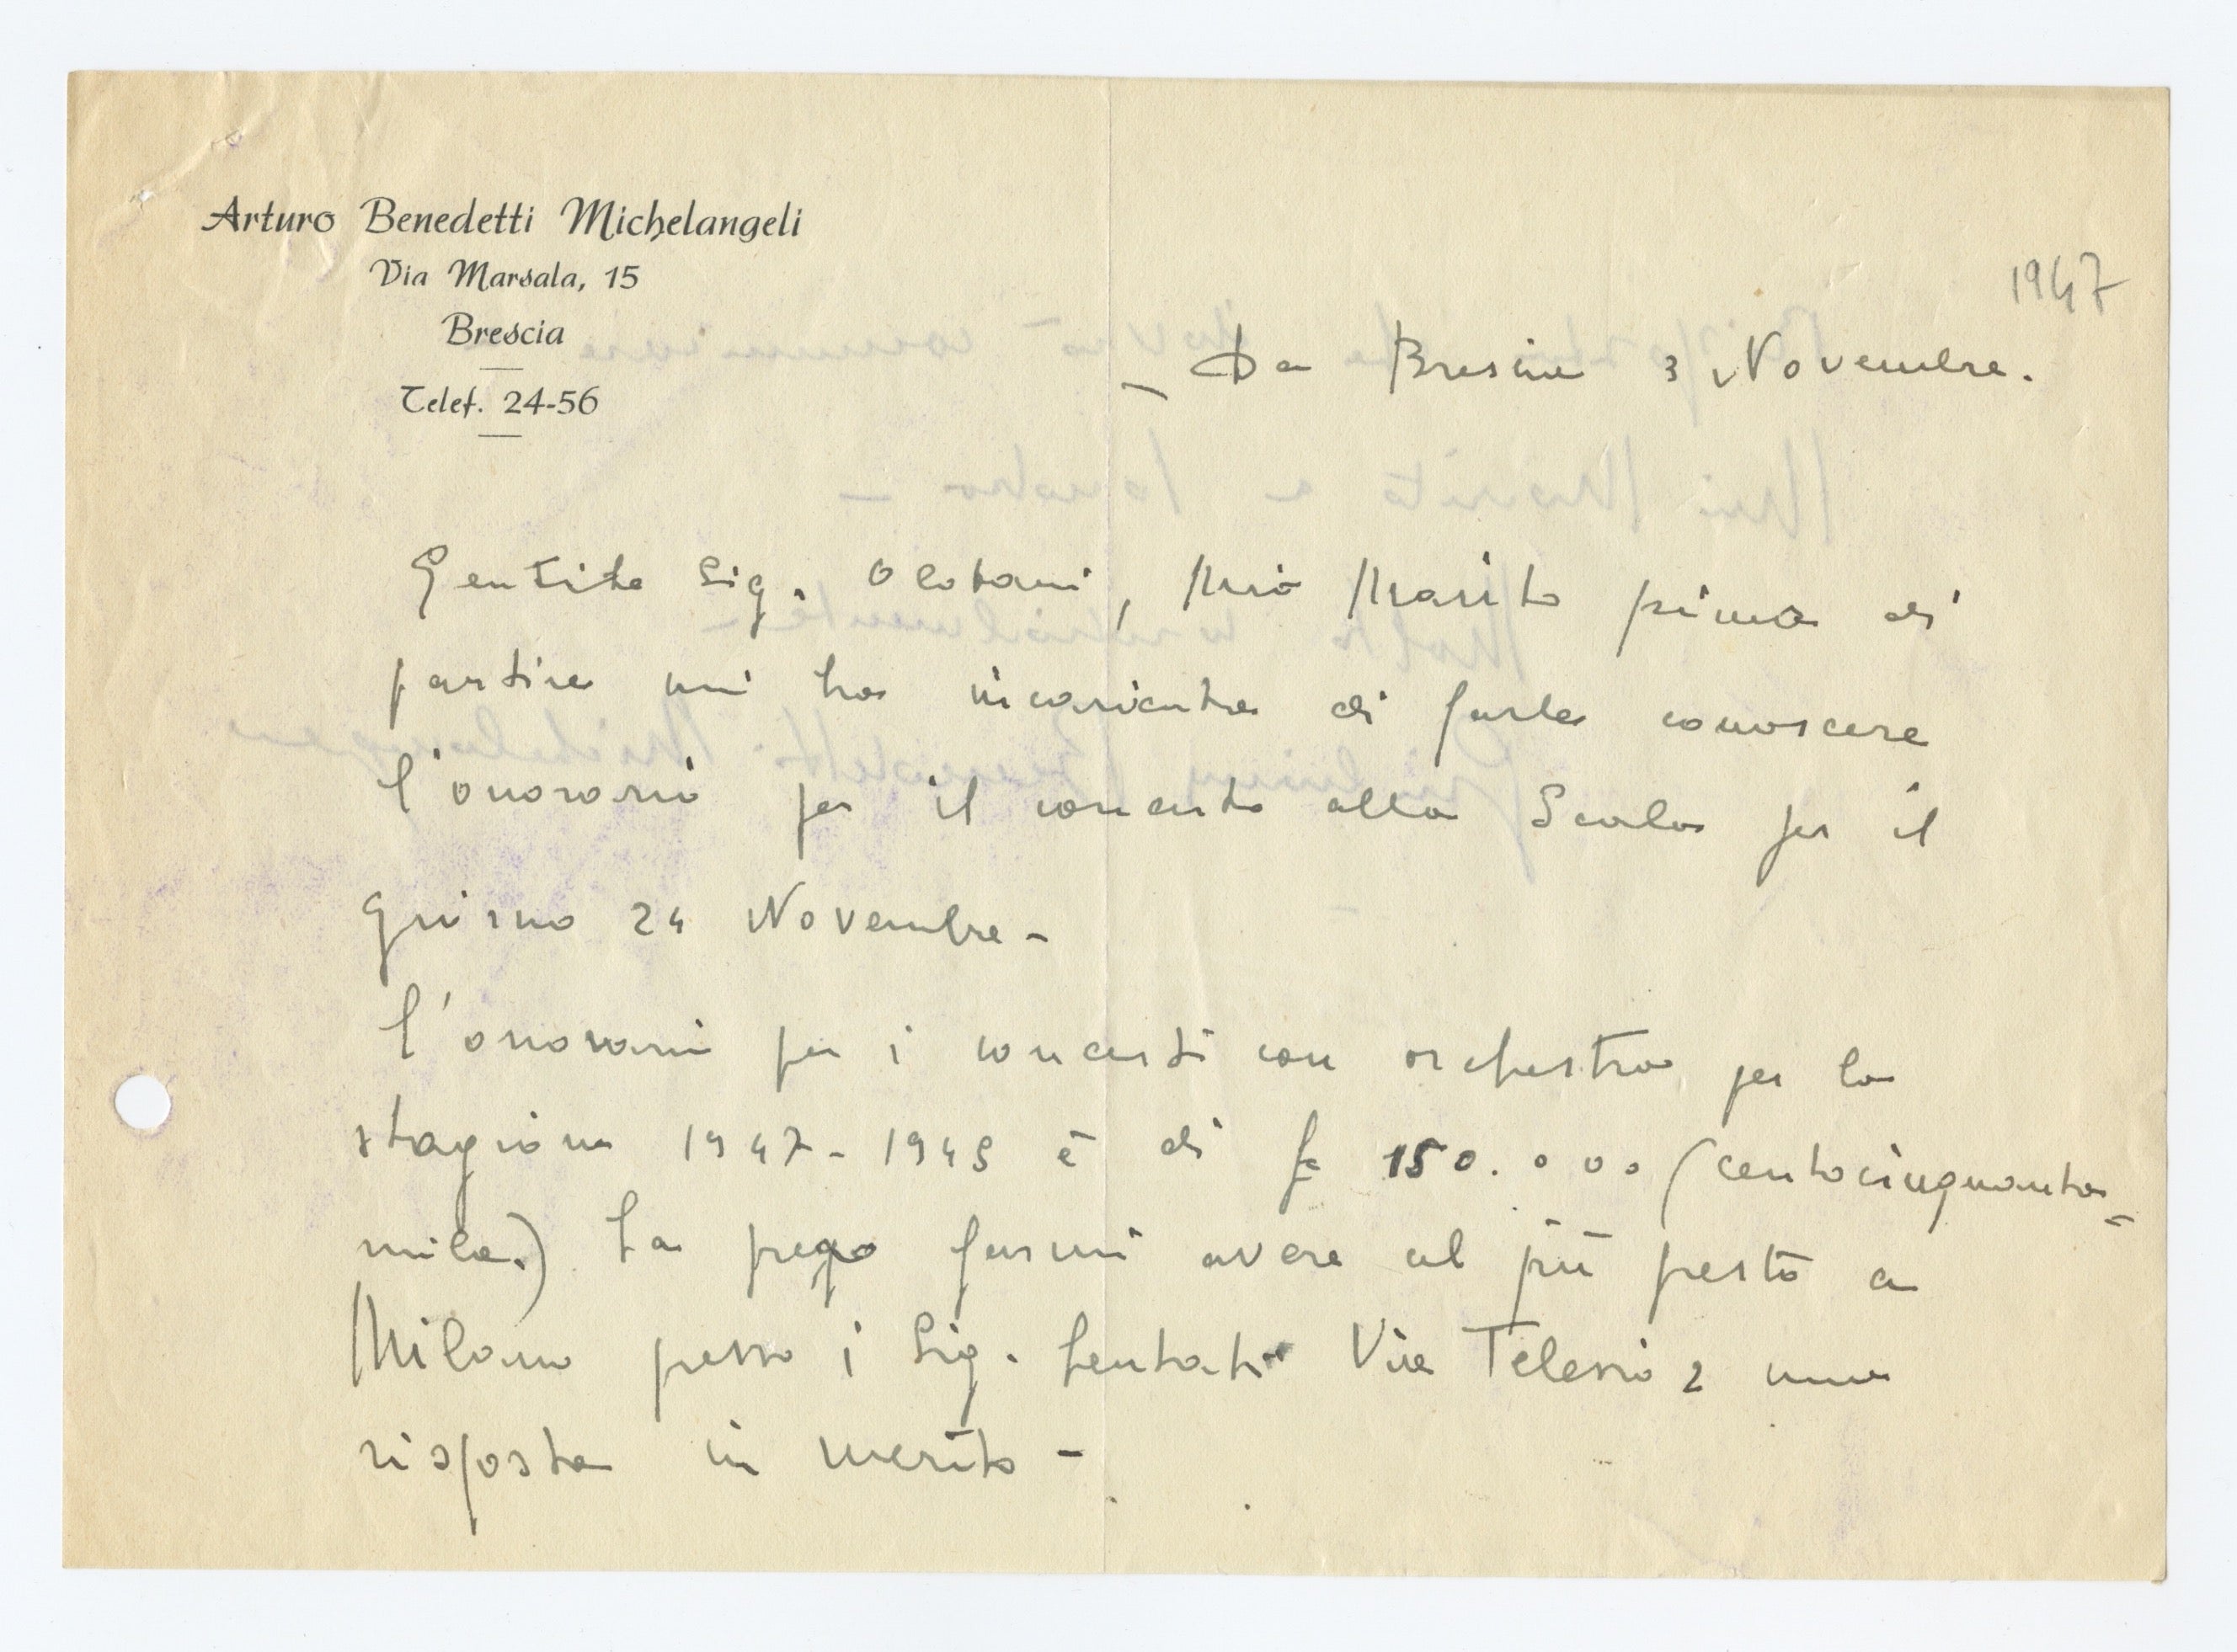 Arturo Benedetti Michelangeli
Via Marsala, 15
Brescia
Telef. 24-56
1947
- Da Brescia 3 Novembre.
Gentile Sig. Oldani, Mio Marito prima di
partire mi ha incaricata di farle conoscere
l'onorario per il concerto alla Scala per il
giorno 24 Novembre -
l'onorario per i concerti con orchestra per la
stagione 1947-1948 è di £ 150.000 (centocinquanta-
mila.) La prego farmi avere al più presto a
Milano presso i Sig. Via Telesio 2 una
risposta in merito -